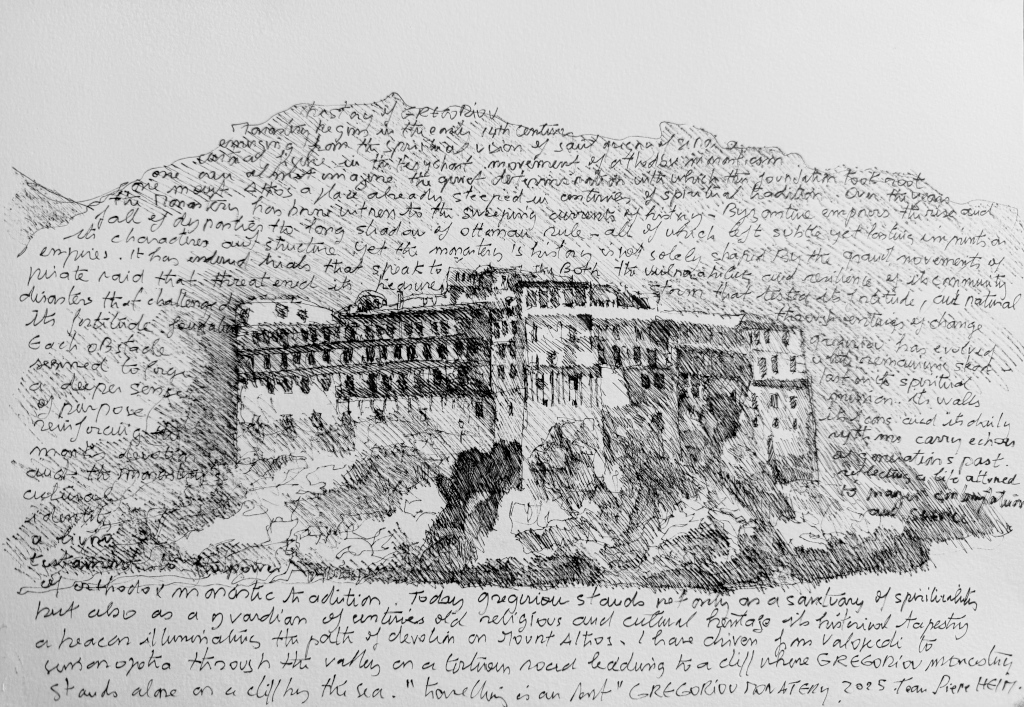 history of GREGORIOU
Monastery begins in the early 14th century
emerging from the spiritual vision of saint Gregory of Sinai a
central figure in to hesychast movement of orthodox monasticism
one can almost imagine the quiet determination with which the foundation took root
one mount Athos a place already steeped in centuries of spiritual tradition. Over the years
the Monastery has borne witness to the sweeping currents of history - Byzantine emperors the rise and
fall of dynasties the long shadow of ottoman rule - all of which left subtle yet lasting imprints on
its character and structure yet the monastery is history is not solely shaped by the grand movements of
empires. It has endured trials that speak to Both the vulnerability and resilience of its community
pirate raid that threatened its treasures storm that tested its fortitude, and natural
disasters that challenged
its fortitude centuries of change
Each obstacle has evolved
seemed to forge remaining
a deeper sense spiritual
of purpose mission. Its walls
reinforcing its and its daily
rythms carry echoes
and the monastery generations past.
cultural reflecting a life attuned
identity to
a living and
testament to the power
of orthodox monastic tradition. Today gregoriou stands not only as a sanctuary of spirituality
but also as a guardian of centuries old religious and cultural heritage its historical tapestry
a beacon illuminating the path of devotion on Mount Athos. I have driven from to
through the valley on a road leading to a cliff where GREGORIOU monastery
stands alone on a cliff by the sea. "travelling is an art" GREGORIOU MONASTERY 2025 Jean Pierre HEIM.